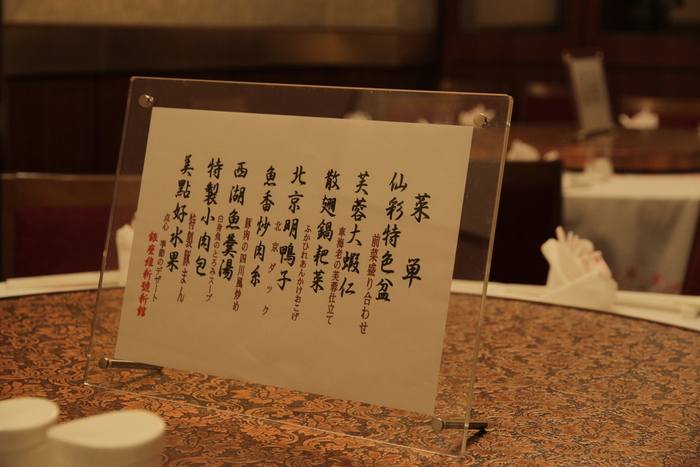 菜單
仙彩特色盆
前菜盛り合わせ
芙蓉大蝦仁
車海老の芙蓉仕立て
散翅鍋耙菜
ふかひれあんかけおこげ
北京明鴨子
北京ダック
魚香炒肉糸
豚肉の四川風炒め
西湖魚羹湯
白身魚のとろみスープ
特製小肉包
特製豚まん
美點好水果
点心 季節のデザート
銀座維新號新館